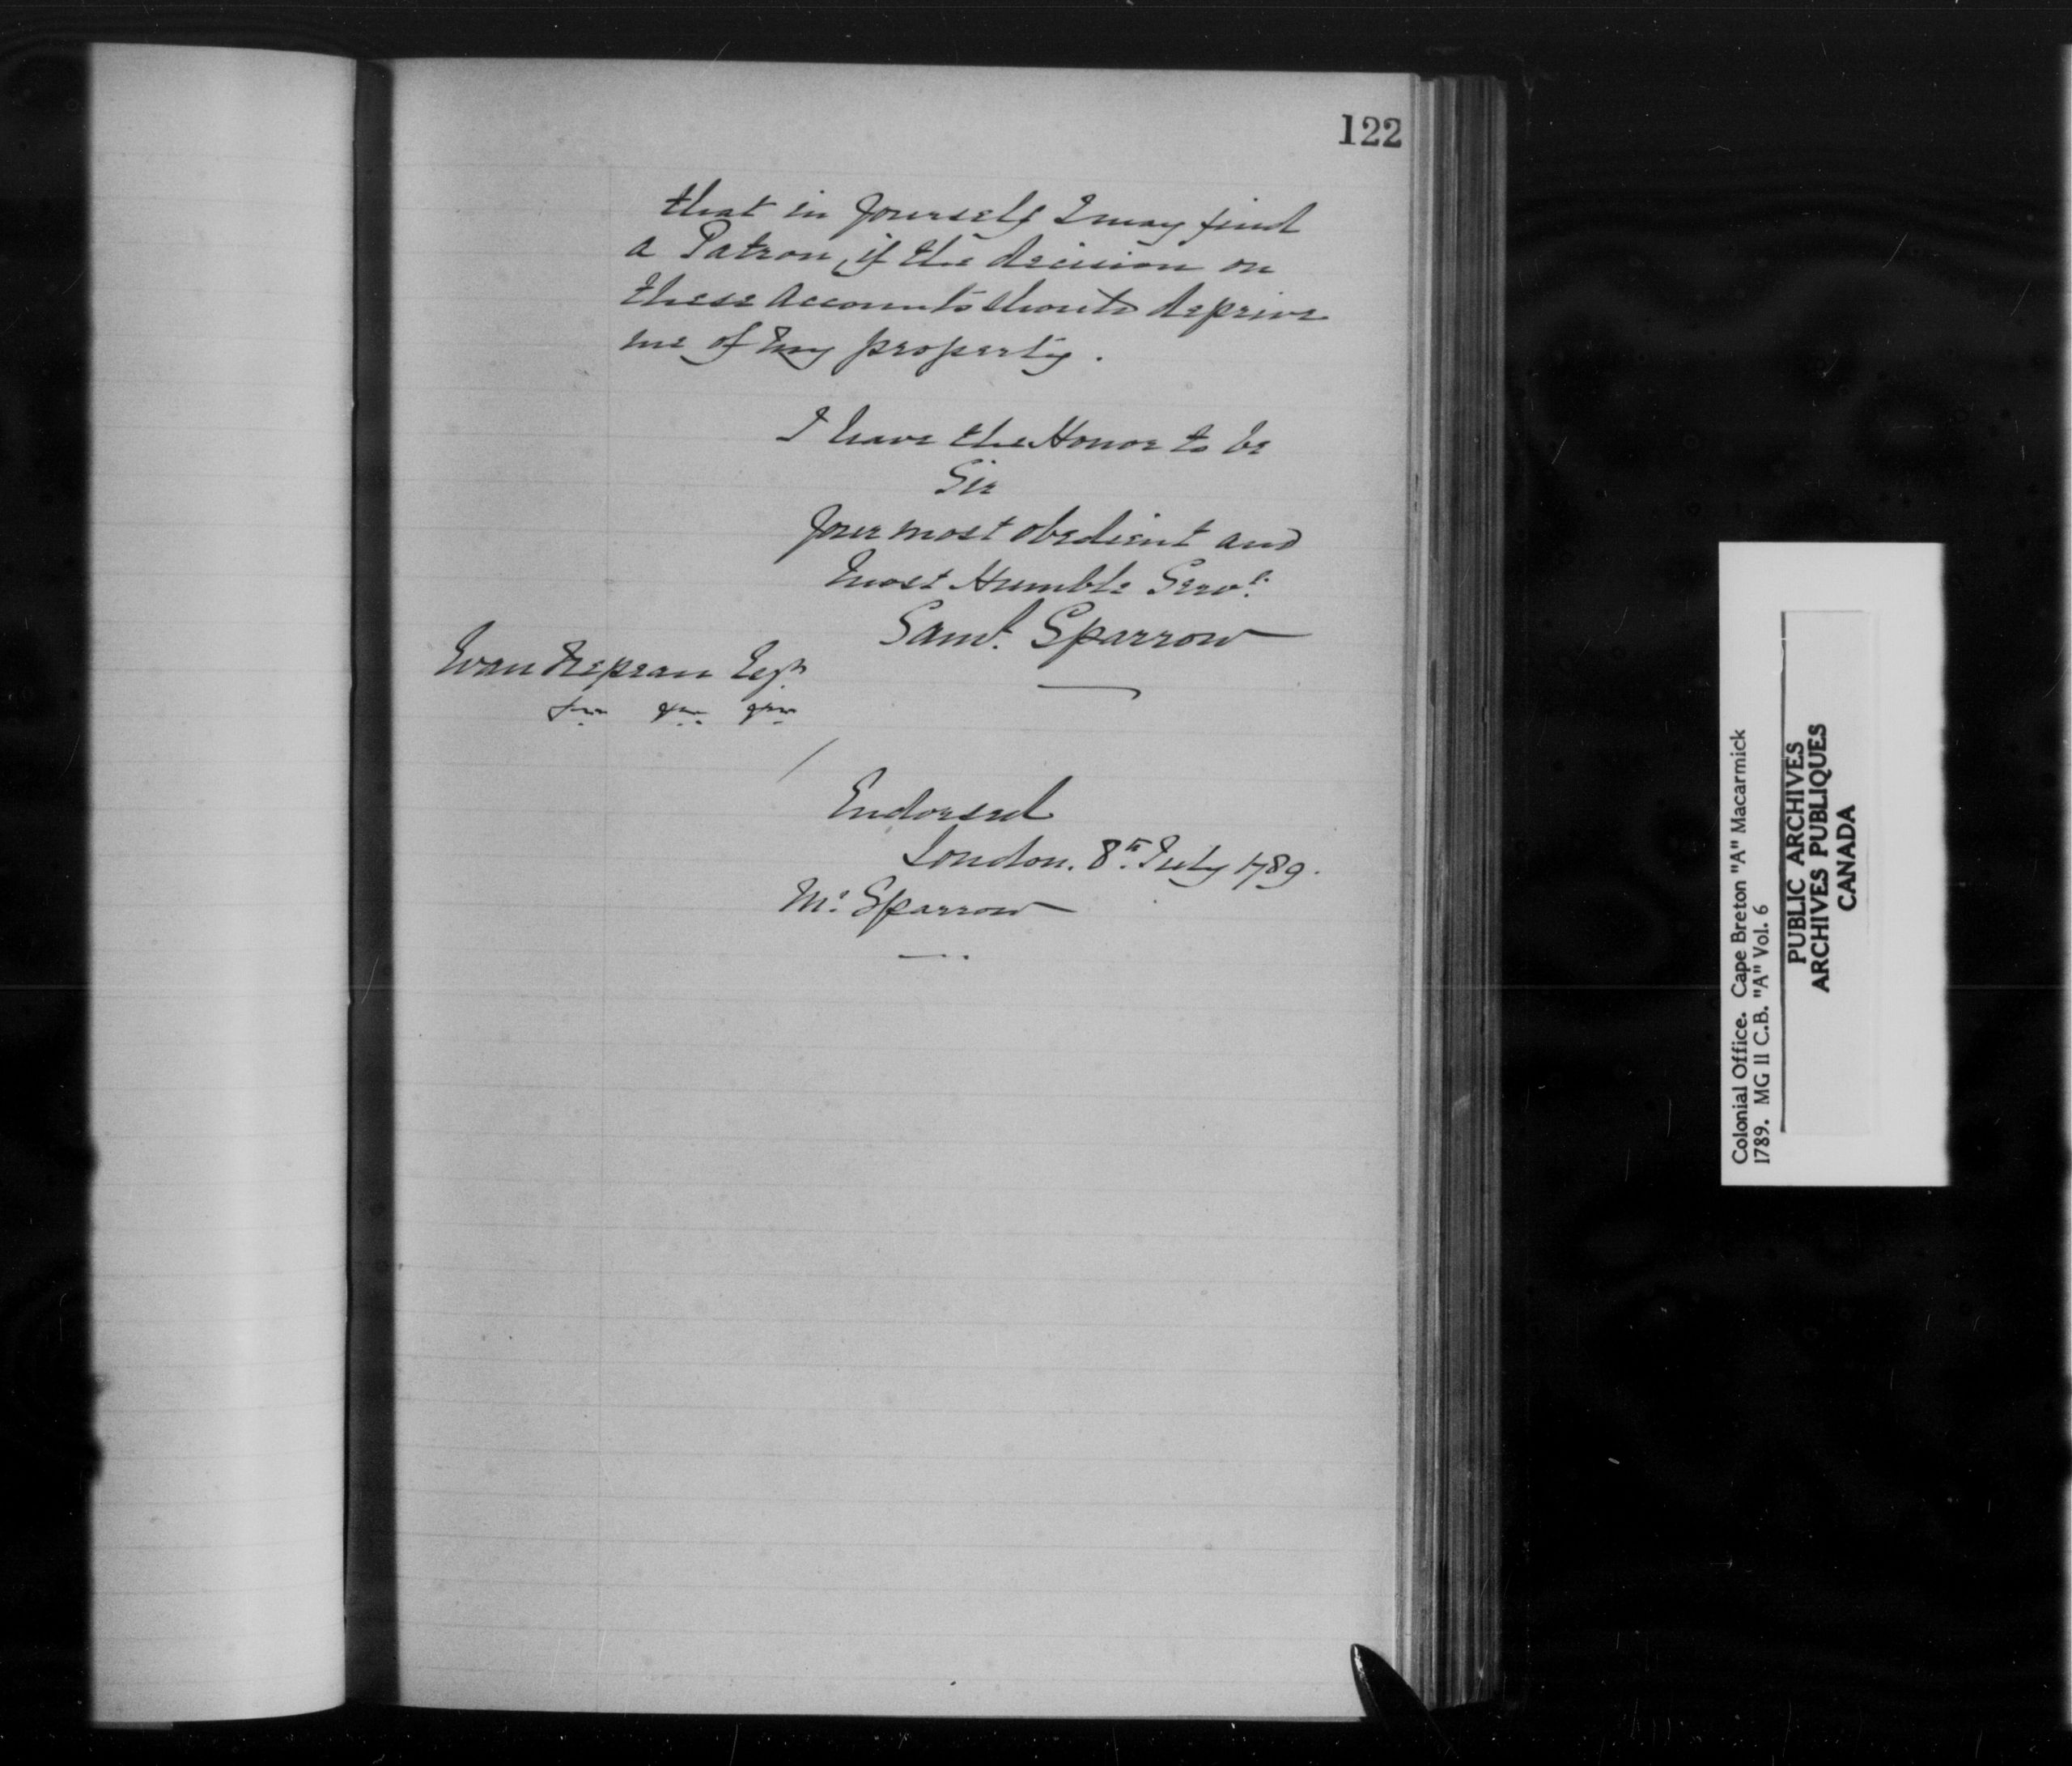 122
that in yourself I may find
a Patron, if the decision on
these Accounts should deprive
me of my property.
I have the Honor to be
Sir
Your most obedient and
most Humble Servt.
Saml. Sparrow
Evan Nepean Esqr
Endorsed
London. 8th July 1789.
Mr. Sparrow
Colonial Office. Cape Breton "A" Macarmick
1789. MG 11 C.B. "A" Vol. 6
PUBLIC ARCHIVES
ARCHIVES PUBLIQUES
CANADA